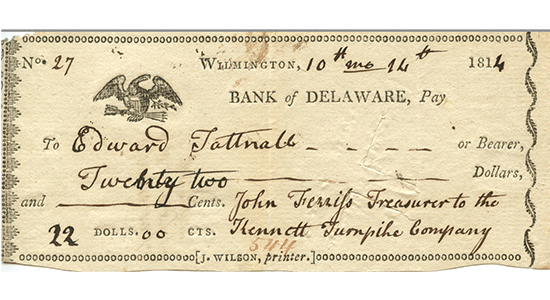 No. 27 Wilmington, 10th mo 14th 1814
BANK of DELAWARE, Pay
To Edward Tattnall - - - - or Bearer,
Twenty two — — — — Dollars,
and ———— Cents. John Ferriss Treasurer to the
22 DOLLS. 00 CTS. Kennett Turnpike Company
544
[J. WILSON, printer.]